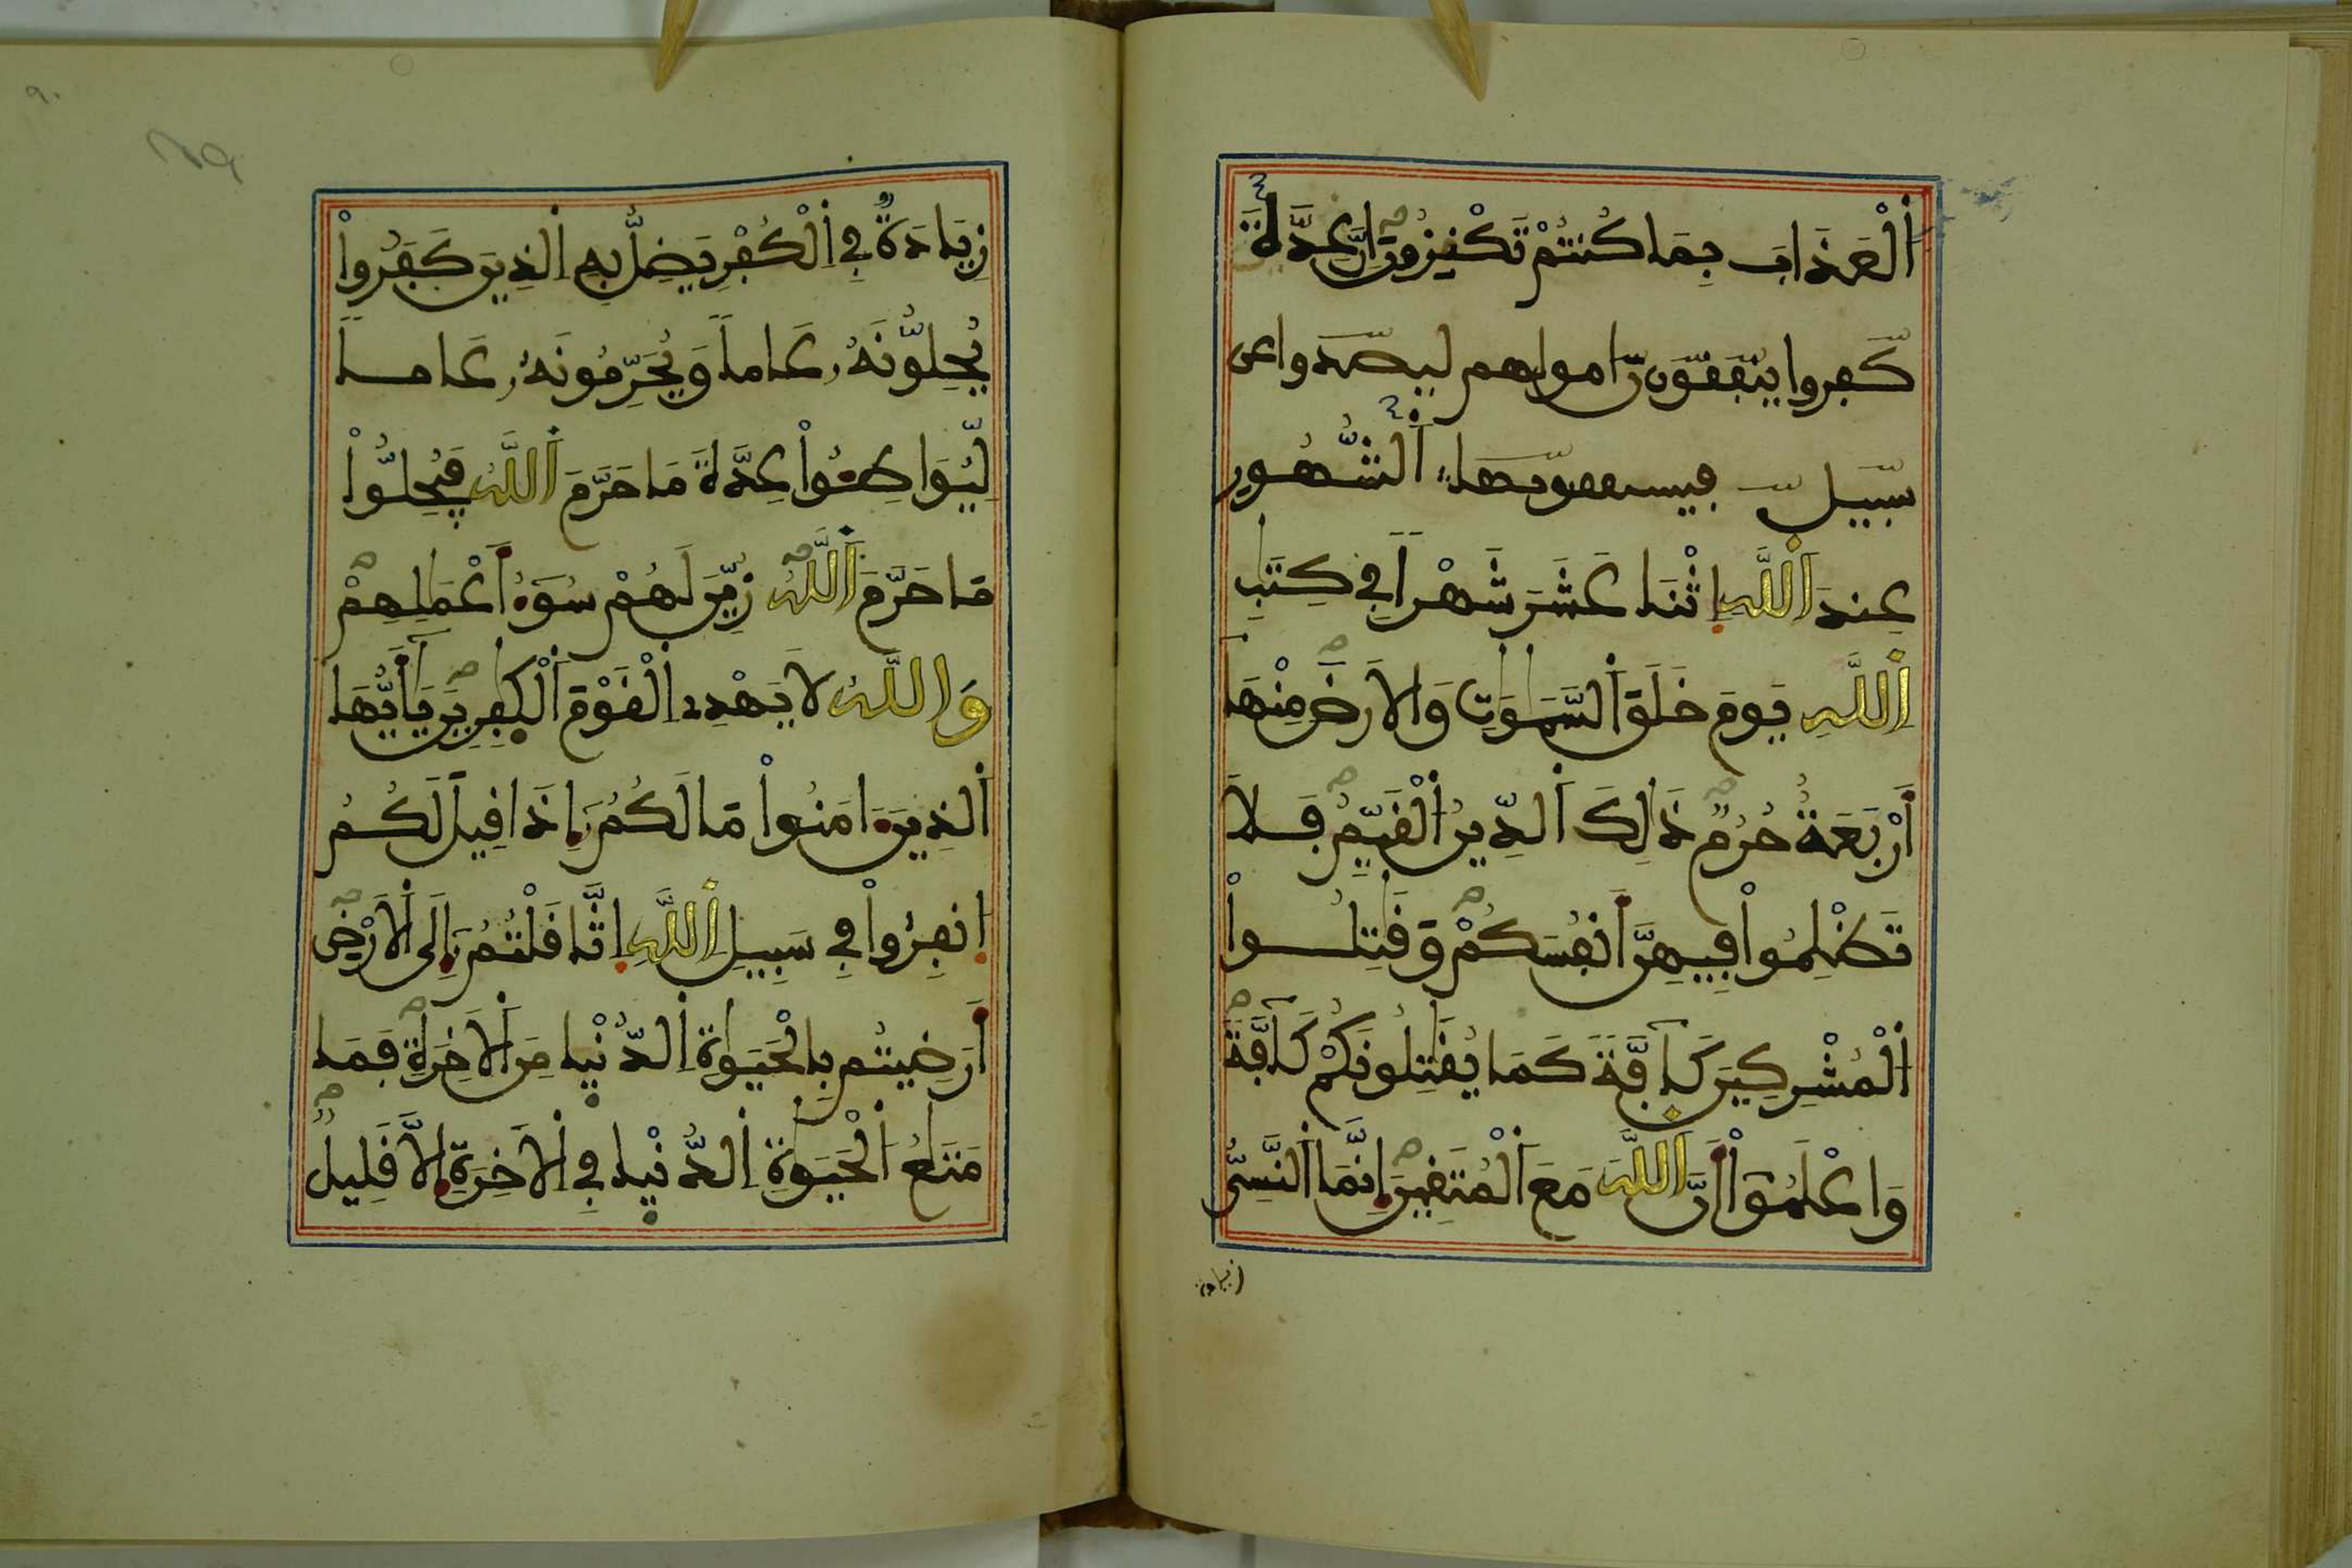 اَ۬لْعَذَابَ بِمَا كُنتُمْ تَكْنِزُونَ إِنَّ عِدَّةَ
كفروا ينفقون اموالهم ليصدوا عن
سبيل فيسنفقونها اَ۬لشُّهُورِ
عِندَ اَ۬للَّهِ اِ۪ثْنَا عَشَرَ شَهْراً فِي كِتَٰبِ
اِ۬للَّهِ يَوْمَ خَلَقَ اَ۬لسَّمَٰوَٰتِ وَالَارْضَ مِنْهَا
أَرْبَعَةٌ حُرُمٌ ذَٰلِكَ اَ۬لدِّينُ اُ۬لْقَيِّمُ فَلَا
تَظْلِمُواْ فِيهِنَّ أَنفُسَكُمْ وَقَٰتِلُواْ
اُ۬لْمُشْرِكِينَ كَآفَّةً كَمَا يُقَٰتِلُونَكُمْ كَآفَّةً
وَاعْلَمُوٓاْ أَنَّ اَ۬للَّهَ مَعَ اَ۬لْمُتَّقِينَ إِنَّمَا اَ۬لنَّسِيُّ
زيادة
٩٠
زِيَادَةٌ فِي اِ۬لْكُفْرِ يَضِلُّ بِهِ اِ۬لذِينَ كَفَرُواْ
يُحِلُّونَهُۥ عَاماً وَيُحَرِّمُونَهُۥ عَاماً
لِّيُوَاطِـُٔواْ عِدَّةَ مَا حَرَّمَ اَ۬للَّهُ فَيُحِلُّواْ
مَا حَرَّمَ اَ۬للَّهُ زُيِّنَ لَهُمْ سُوٓءُ أَعْمَٰلِهِمْ
وَاللَّهُ لَا يَهْدِے اِ۬لْقَوْمَ اَ۬لْكَٰفِرِينَ يَٰٓأَيُّهَا
اَ۬لذِينَ ءَامَنُواْ مَا لَكُمُۥٓ إِذَا قِيلَ لَكُمُ
اُ۪نفِرُواْ فِي سَبِيلِ اِ۬للَّهِ اِ۪ثَّاقَلْتُمُۥٓ إِلَي اَ۬لَارْضِ
أَرَضِيتُم بِالْحَيَوٰةِ اِ۬لدُّنْيَا مِنَ اَ۬لَاخِرَةِ فَمَا
مَتَٰعُ اُ۬لْحَيَوٰةِ اِ۬لدُّنْيَا فِي اِ۬لَاخِرَةِ إِلَّا قَلِيلٌ